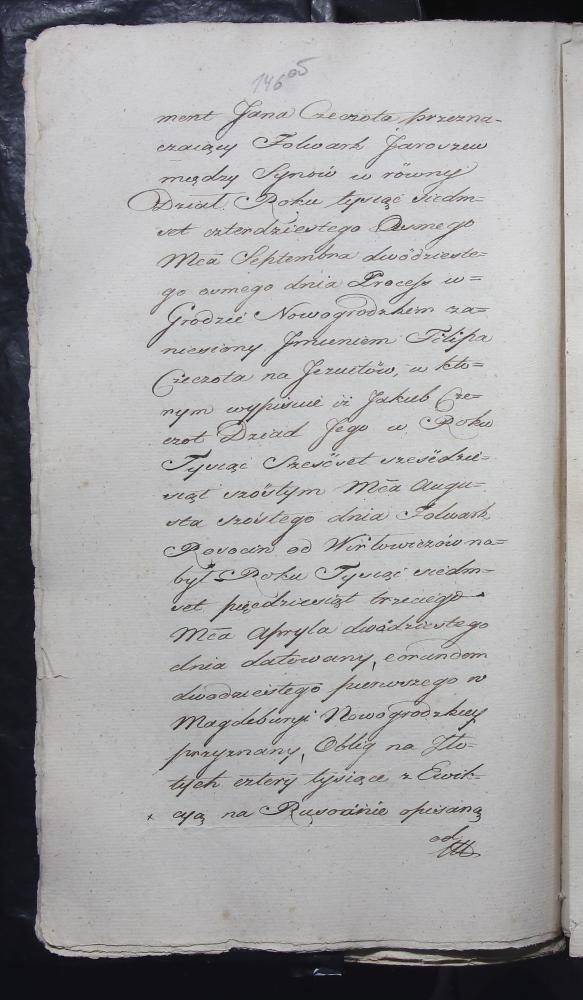 146 об
ment Jana Czeczota przezna-
czaiący Folwark Jaroszew
między Synów w równy
Dział. Roku tysiąc siedm-
set czterdziestego Osmego
Mca Septembra dwódzieste-
go osmego dnia Process w=
Grodzie Nowogrodzkim za=
niesiony Imieniem Filipa
Czeczota na Jezuetów, w któ=
rym wypisuie iż Jakub Cze=
czot Dziad Jego w Roku
Tysiąc Sześćset sześćdzie-
siąt szóstym Mca Augu-
sta szóstego dnia Folwark
od Wirłowiczów na=
był. Roku Tysiąc siedm-
set pięćdziesiąt trzeciego
Mca Apryla dwódziestego
dnia datowany, eorundem
dwodziestego pierwszego w
Magdeburyi Nowogrodzkiey
przyznany, Oblig na Zło-
tych cztery tysiące z Ewik-
cyą na opisaną
od